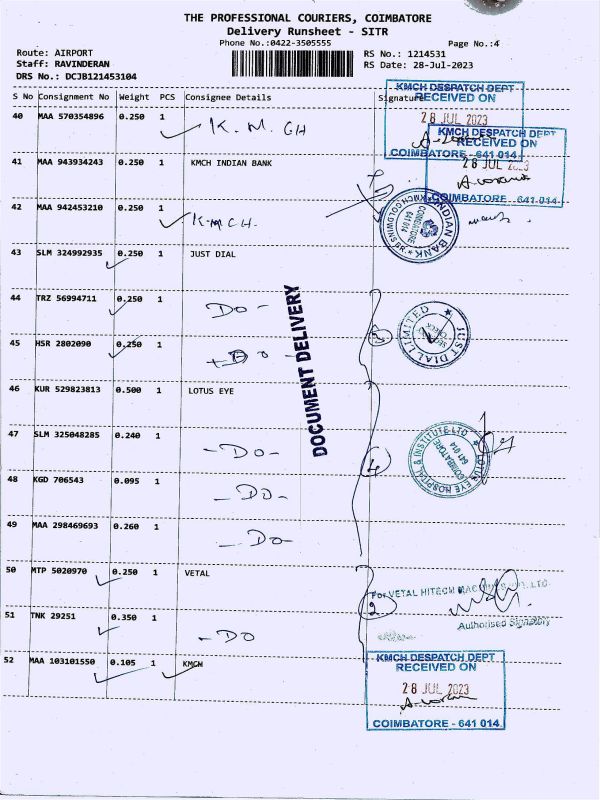 THE PROFESSIONAL COURIERS, COIMBATORE
Delivery Runsheet - SITR
Phone No.:0422-3505555 Page No.:4
Route: AIRPORT RS No.: 1214531
Staff: RAVINDERAN RS Date: 28-Jul-2023
DRS No.: DCJB121453104
S No Consignment No Weight PCS Consignee Details Signature
KMCH DESPATCH DEPT
RECEIVED ON
28 JUL 2023
COIMBATORE - 641 014
40 MAA 570354896 0.250 1 K.M.CH
KMCH DESPATCH DEPT
RECEIVED ON
28 JUL 2023
COIMBATORE - 641 014
41 MAA 943934243 0.250 1 KMCH INDIAN BANK
42 MAA 942453210 0.250 1 K.M.C.H.
INDIAN BANK
COIMBATORE
641 014
43 SLM 324992935 0.250 1 JUST DIAL
44 TRZ 56994711 0.250 1 DO -
JUST DIAL LIMITED
45 HSR 2802090 0.250 1 - DO -
3
DOCUMENT DELIVERY
46 KUR 529823813 0.500 1 LOTUS EYE
47 SLM 325048285 0.240 1 - DO -
4
LOTUS EYE HOSPITAL & INSTITUTE LTD
COIMBATORE
641 014
48 KGD 706543 0.095 1 - DO -
49 MAA 298469693 0.260 1 - DO -
50 MTP 5020970 0.250 1 VETAL
For VETAL HITECH
2
Authorised Signatory
51 TNK 29251 0.350 1 - DO
52 MAA 103101550 0.105 1 KMCH
KMCH DESPATCH DEPT
RECEIVED ON
28 JUL 2023
COIMBATORE - 641 014